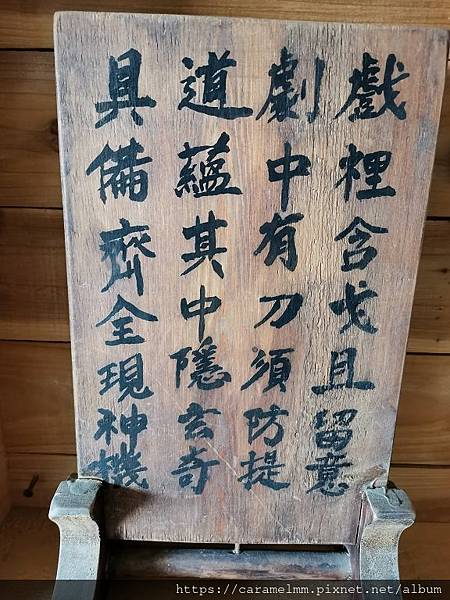 戲裡含戈且留意
劇中有刀須防提
道蘊其中隱玄奇
具備齊全現神機
https://caramelmm.pixnet.net/album